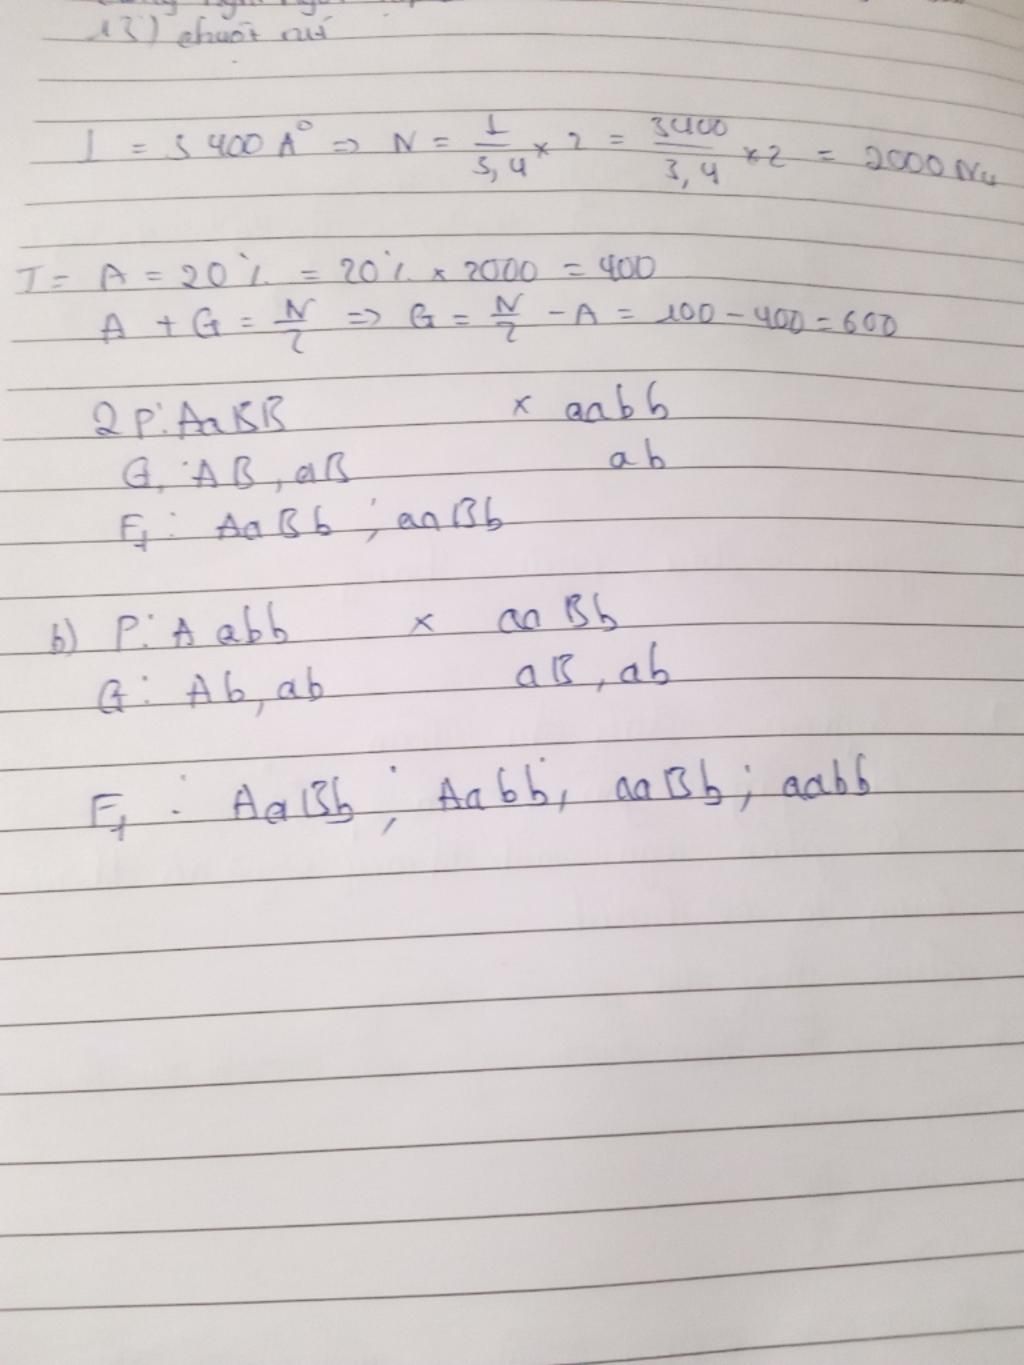 13) chuột rút
l = 3400 A° => N = l/3,4 × 2 = 3400/3,4 × 2 = 2000 Nu
T = A = 20% = 20% × 2000 = 400
A + G = N/2 => G = N/2 - A = 100 - 400 = 600
2 P: AaBB × aabb
G: AB, aB ab
F1: AaBb ; aaBb
b) P: Aabb × aaBb
G: Ab, ab aB, ab
F1: AaBb ; Aabb ; aaBb ; aabb